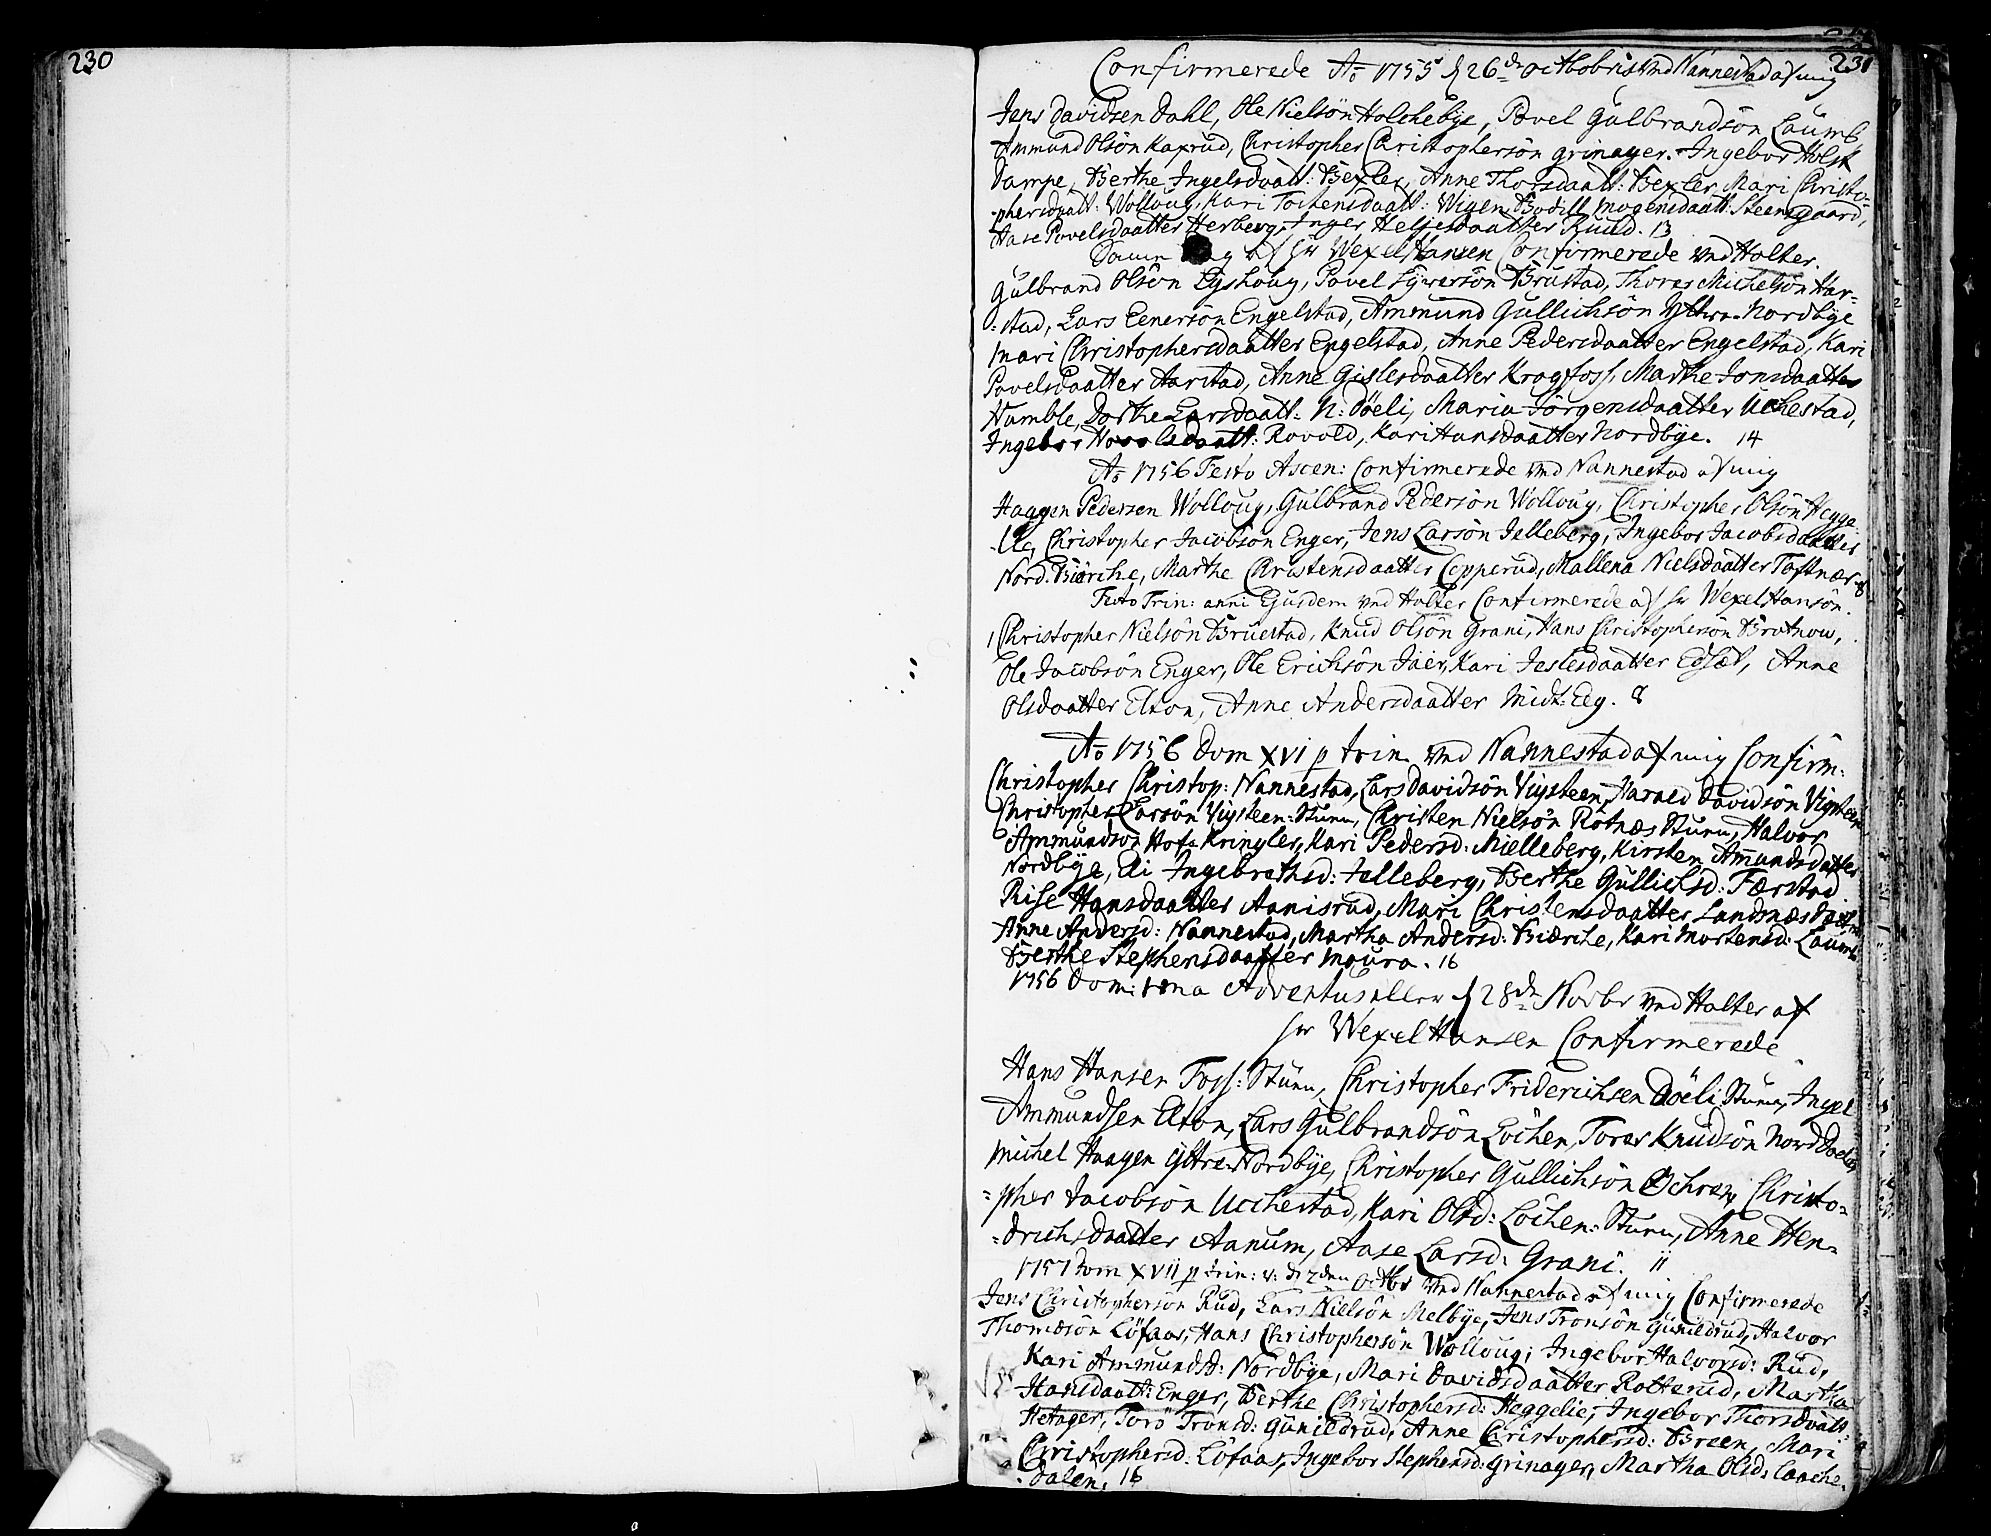 230
231
Confirmerede Ao 1755 d 26de Octhobris ved Nannestad af mig
Jens Davidsen Dahl, Ole Nielsön Holchebye, Povel Gulbrandsön Laumb
Ammund Olsön Kaxrud, Christopher Christophersön grinager. Ingebor Holst
Dampe, Berthe Ingelsdaatt: Bexler, Anne Thorsdaatt: Bexler, Mari Christo-
-phersdaatt: Wolloug, Kari Tostensdaatt: Wigen, Bodill Mogensdaatt: Steensgaard,
Aase Povelsdaatter Herberg, Inger Heljesdaatter Ruud. 13
Samme Dag af Hr Wexel Hansen Confirmerede ved Holter.
Gulbrand Olsön Eyshoug, Povel Syversön Brustad, Thores Michelsön Har-
-stad, Lars Eenersön Engelstad, Ammund Gullichsön Ythre Nordbye
Mari Christophersdaatter Engelstad, Anne Pedersdaatter Engelstad, Kari
Povelsdaatter Aarstad, Anne Gislesdaatter Kragfoss, Marthe Jonsdaatter
Humble, Dorthe Larsdaatt: N: Döeli, Maria Jörgensdaatter Uchestad,
Ingebor daatt: Rovold, Kari Hansdaatter Nordbye. 14
Ao 1756 Festo Ascen: Confirmerede ved Nannestad af mig
Haagen Pedersen Wolloug, Gulbrand Pedersön Wolloug, Christopher Olsön Hegge
-lie, Christopher Jacobsön Enger, Jens Larsön Jelleberg, Ingebor Jacobsdaatter
Nord: Biörche, Marthe Christensdaatter Epperud, Mallena Nielsdaatter Toftnær 8
Festo Trin: anni Ejusdem ved Holter Confirmerede af Hr Wexel Hansön.
Christopher Nielsön Bruestad, Knud Olsön Grani, Hans Christophersön Bratnow,
Ole Jacobsön Enger, Ole Erichsön Jaer, Kari Jeslesdaatter Edsæt, Anne
Olsdaatter Elton, Anne Andersdaatter Midt: Eeg. 8
Ao 1756 Dom XVI p trin. ved Nannestad af mig Confirm:
Christopher Christop: Nannestad, Lars Davidsön Vigsteen, Harald Davidsön Vigsteen
Christopher Larsön Vigsteen: Stuen, Christen Nielsön Rotnæs Stuen, Halvor
Ammundsön Hof: Kringler, Kari Pedersd: Mielleberg, Kirsten Amundsdatter
Nordbye, Eli Ingebrethsd: Jelleberg, Berthe Gullichsd: Færstad
Rise Hansdaatter Aanisrud, Mari Christensdaatter Landsnæs
Anne Andersd: Nannestad, Martha Andersd: Biærche, Kari Mortensd: Laumb
Berthe Stephensdaatter Moura. 16
1756 Dom: 1ma Adventus eller d 28de Novbr ved Holter af
Hr Wexel Hansen Confirmerede
Hans Hansen Foss: Stuen, Christopher Friderichsen Döeli Stuen, Ingel
Ammundsen Elton, Lars Gulbrandsön Löchen, Torer Knudsön Nord Doeli
Michel Haagen Yttre Nordbye, Christopher Gullichsön Öchren, Christo-
-pher Jacobsön Ucchestad, Kari Olsd: Löchen: Stuen, Anne Hen-
-drichsdaatter Aanum, Aase Larsd: Grani. 11
1757 Dom XVII p trin: v: d: 2den Octbr ved Nannestad af mig Confirmerede
Jens Christophersön Rud, Lars Nielsön Melbye, Jens Tronsön Gunildrud, Halvor
Thomæsön Löfaas, Hans Christophersön Wolloug, Ingebor Halvorsd: Rud,
Kari Ammundsd: Nordbye, Mari Davidsdaatter Rotterud, Martha
Hansdaatt: Enger, Berthe Christophersd: Heggelie, Ingebor Thorsdaatt:
Hetager, Torö Tronsd: Gunildrud, Anne Christophersd: Breen, Mari
Christophersd: Löfaas, Ingebor Stephensd: Grinager, Martha Olsd: Laache-
-dalen. 16